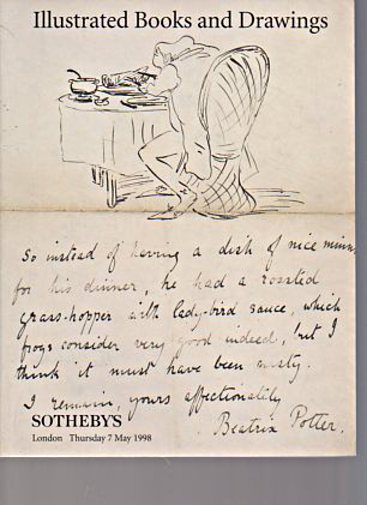 Illustrated Books and Drawings
So instead of having a dish of nice minn
for his dinner, he had a roasted
grass-hopper with lady-bird sauce, which
frogs consider very good indeed, but I
think it must have been nasty.
I remain, yours affectionately
Beatrix Potter.
SOTHEBY'S
London Thursday 7 May 1998